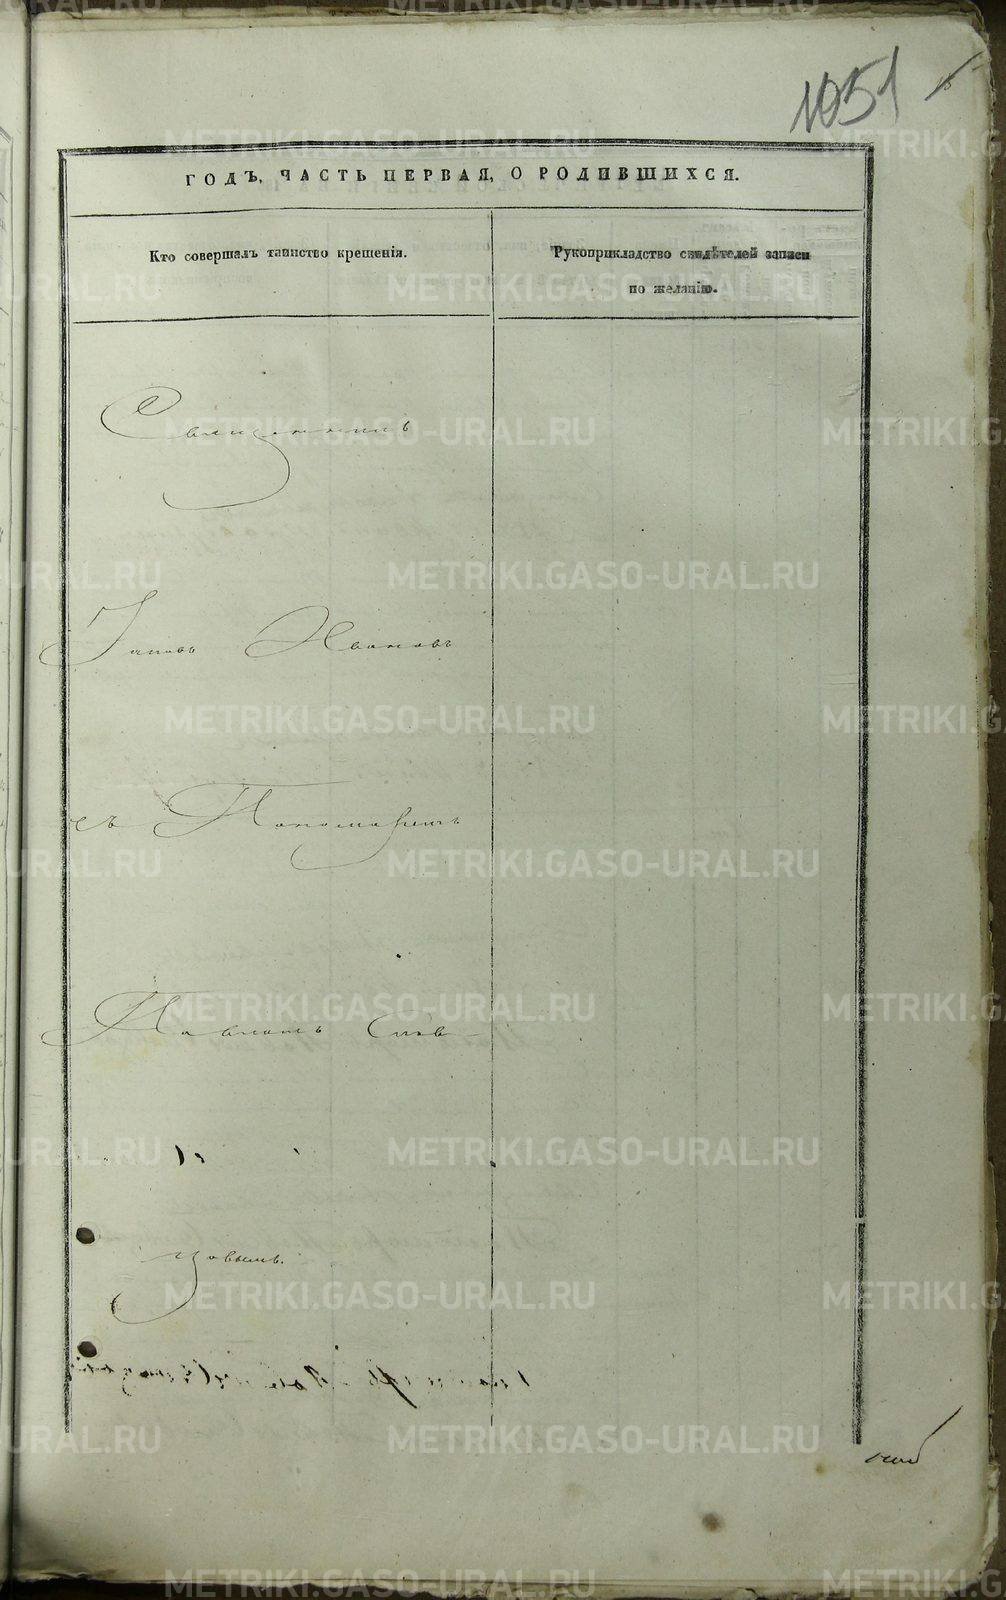 1051
ГОДЪ, ЧАСТЬ ПЕРВАЯ, О РОДИВШИХСЯ.
Кто совершалъ таинство крещенія.
Рукоприкладство свидѣтелей записи
по желанію.
Священникъ
Іаковъ Ивановъ
съ Пономаремъ
Павломъ Слов
цовымъ.
METRIKI.GASO-URAL.RU